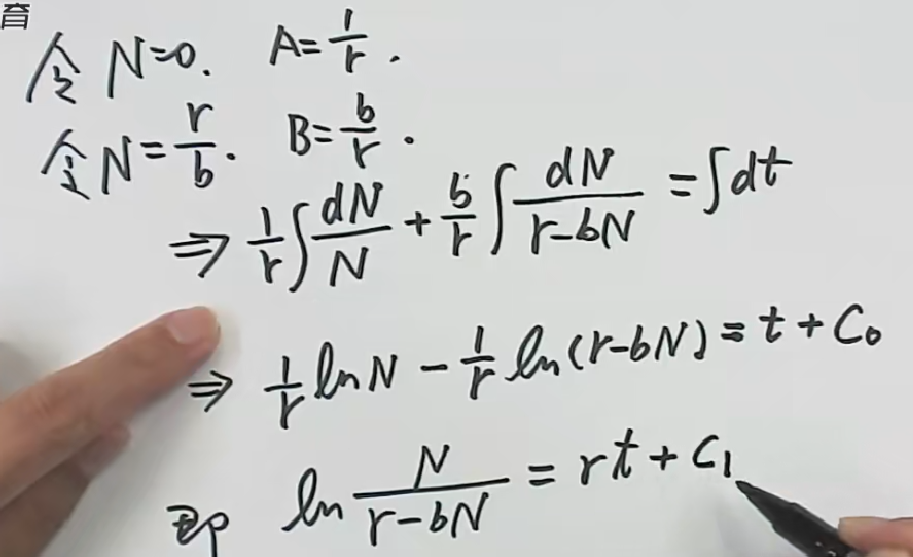 育
令 N=0. A=\frac{1}{r}.
令 N=\frac{r}{b}. B=\frac{b}{r}.
⇒ \frac{1}{r}∫\frac{dN}{N} + \frac{b}{r}∫\frac{dN}{r-bN} = ∫dt
⇒ \frac{1}{r}lnN - \frac{1}{r}ln(r-bN) = t + C₀
即 ln\frac{N}{r-bN} = rt + C₁